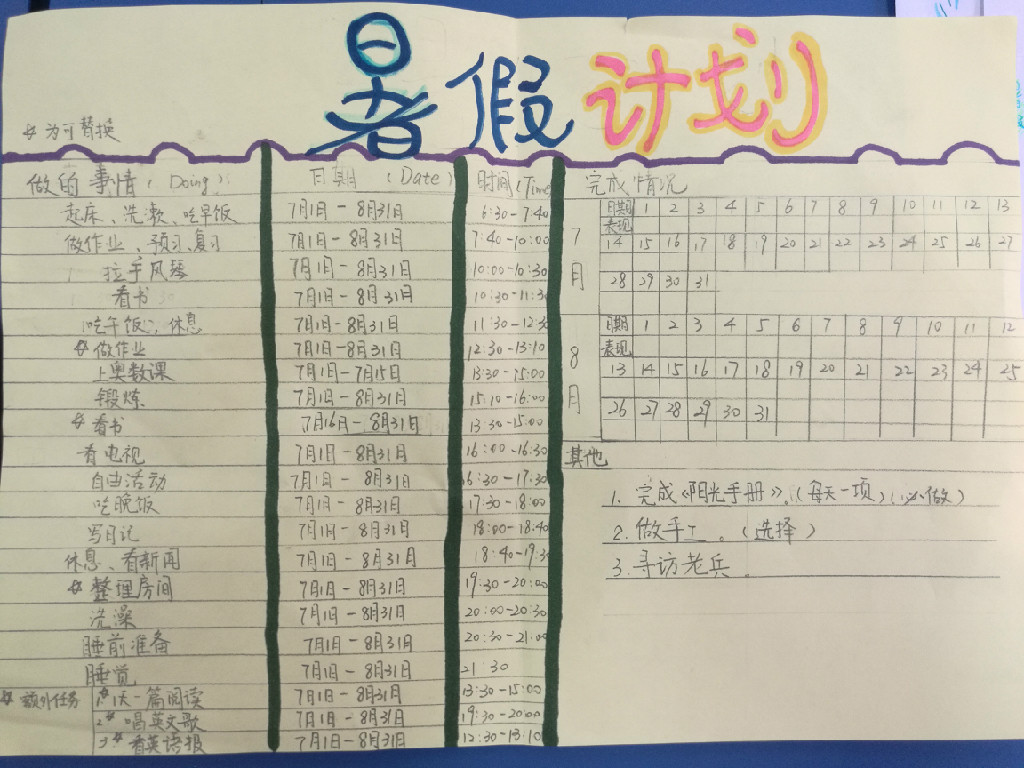 暑假计划
☆为可替换
做的事情(Doing) 日期 (Date) 时间(Time
起床、洗漱、吃早饭 7月1日-8月31日 6:30-7:40
做作业、预习、复习 7月1日-8月31日 7:40-10:00
拉手风琴 7月1日-8月31日 10:00-10:30
看书 7月1日-8月31日 10:30-11:30
吃午饭、休息 7月1日-8月31日 11:30-12:30
☆做作业 7月1日-8月31日 12:30-13:10
上奥数课 7月1日-7月15日 13:30-15:00
锻炼 7月1日-8月31日 15:10-16:00
☆看书 7月16日-8月31日 13:30-15:00
看电视 7月1日-8月31日 16:00-16:30
自由活动 7月1日-8月31日 16:30-17:30
吃晚饭 7月1日-8月31日 17:30-18:00
写日记 7月1日-8月31日 18:00-18:40
休息、看新闻 7月1日-8月31日 18:40-19:3
☆整理房间 7月1日-8月31日 19:30-20:00
洗澡 7月1日-8月31日 20:00-20:30
睡前准备 7月1日-8月31日 20:30-21:00
睡觉 7月1日-8月31日 21:30
☆额外任务 1☆天一篇阅读 7月1日-8月31日 13:30-15:00
2☆唱英文歌 7月1日-8月31日 19:30-20:00
3☆看英语报 7月1日-8月31日 12:30-13:10
完成情况
7月
日期 1 2 3 4 5 6 7 8 9 10 11 12 13
表现
14 15 16 17 18 19 20 21 22 23 24 25 26 27
28 29 30 31
8月
日期 1 2 3 4 5 6 7 8 9 10 11 12
表现
13 14 15 16 17 18 19 20 21 22 23 24 25
26 27 28 29 30 31
其他
1. 完成《阳光手册》,(每天一项)(必做)
2. 做手工。(选择)
3. 寻访老兵。